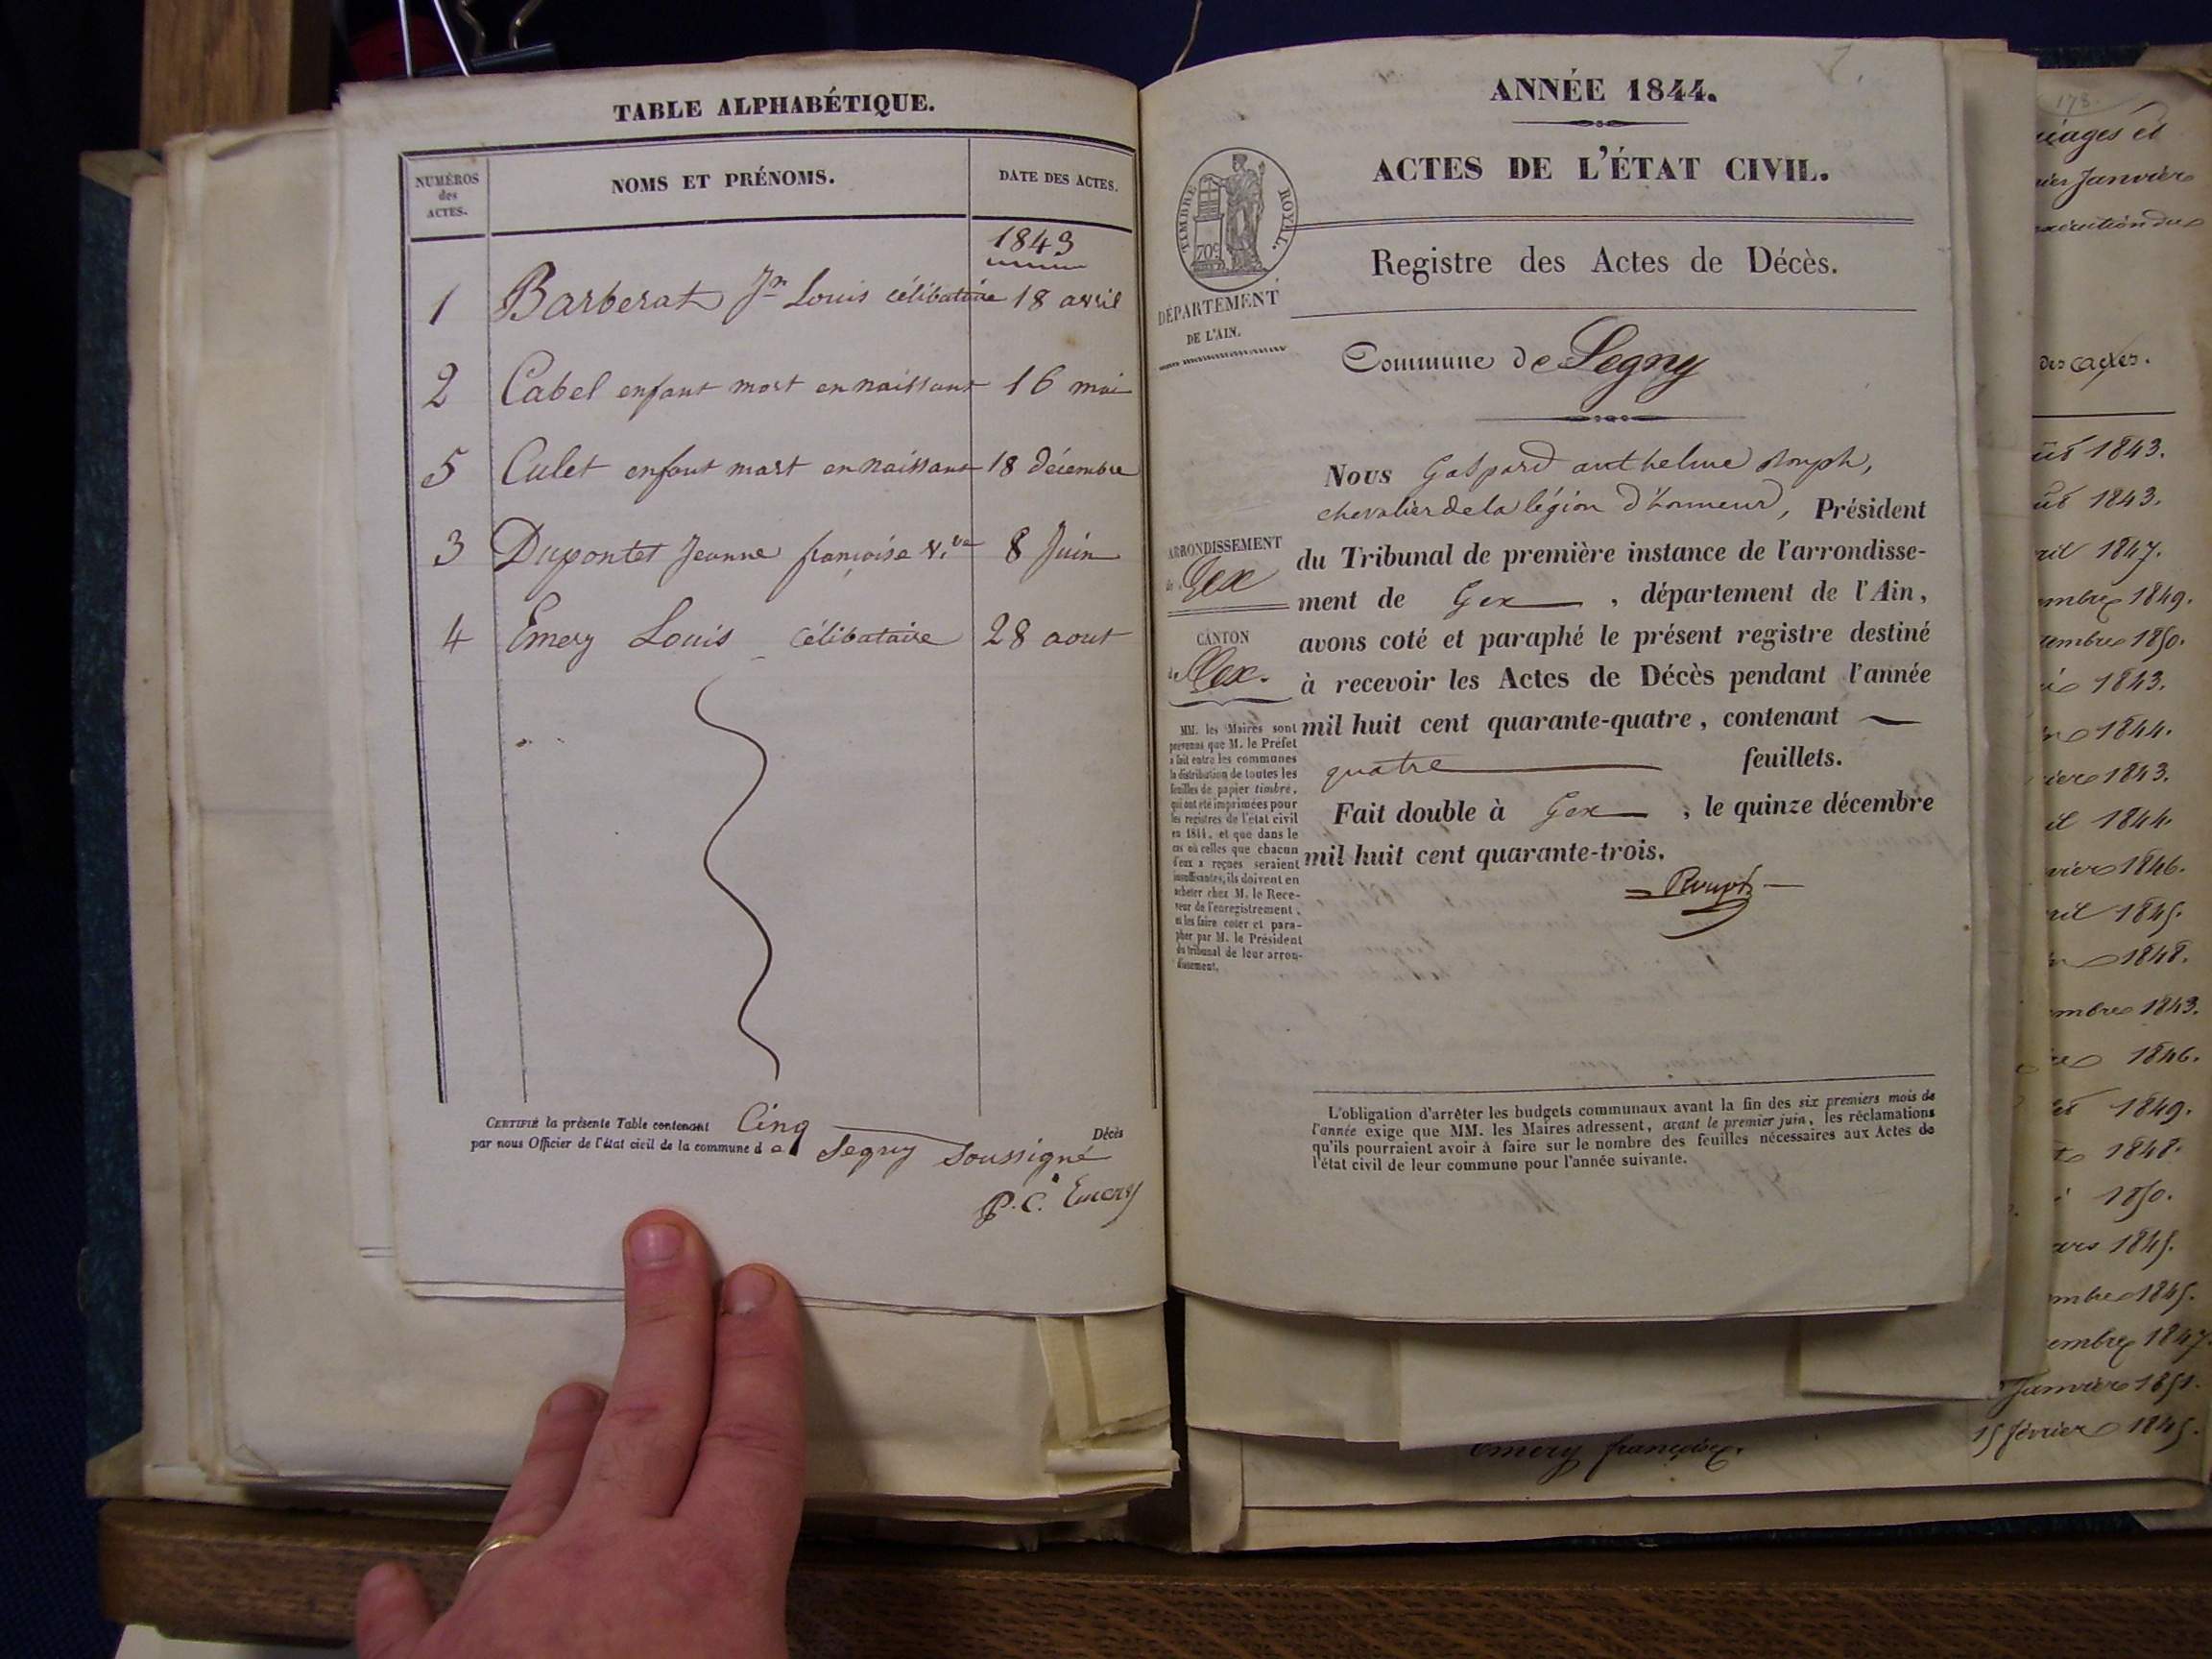 TABLE ALPHABÉTIQUE.
NUMÉROS
des
ACTES.
NOMS ET PRÉNOMS.
DATE DES ACTES.
1843
1 Barberat Jn Louis célibataire 18 avril
2 Cabel enfant mort en naissant 16 mai
5 Culet enfant mort en naissant 18 décembre
3 Dupontet Jeanne françoise v.ve 8 Juin
4 Emery Louis célibataire 28 aout
CERTIFIÉ la présente Table contenant Cinq Décès
par nous Officier de l'état civil de la commune de Segny soussigné
P. C. Emery
ANNÉE 1844.
ACTES DE L'ÉTAT CIVIL.
TIMBRE ROYAL.
70c
Registre des Actes de Décès.
DÉPARTEMENT
DE L'AIN.
Commune de Segny
Nous Gaspard anthelme
chevalier de la légion d'honneur, Président
du Tribunal de première instance de l'arrondisse-
ment de Gex, département de l'Ain,
avons coté et paraphé le présent registre destiné
à recevoir les Actes de Décès pendant l'année
mil huit cent quarante-quatre, contenant
quatre feuillets.
Fait double à Gex, le quinze décembre
mil huit cent quarante-trois.
ARRONDISSEMENT
de Gex
CANTON
de Gex.
MM. les Maires sont
prévenus que M. le Préfet
a fait entre les communes
la distribution de toutes les
feuilles de papier timbré,
qui ont été imprimées pour
les registres de l'état civil
en 1844, et que dans le
cas où celles que chacun
d'eux a reçues seraient
insuffisantes, ils doivent en
acheter chez M. le Rece-
veur de l'enregistrement,
et les faire coter et para-
pher par M. le Président
du tribunal de leur arron-
dissement.
L'obligation d'arrêter les budgets communaux avant la fin des six premiers mois de
l'année exige que MM. les Maires adressent, avant le premier juin, les réclamations
qu'ils pourraient avoir à faire sur le nombre des feuilles nécessaires aux Actes de
l'état civil de leur commune pour l'année suivante.
173
Janvier
des actes.
1843.
1843.
1847.
1849.
1850.
1843.
1844.
1843.
1844.
1846.
1845.
1848.
1843.
1846.
1849.
1848.
1850.
1845.
1845.
1847.
Janvier 1851.
Emery françoise. 15 février 1845.